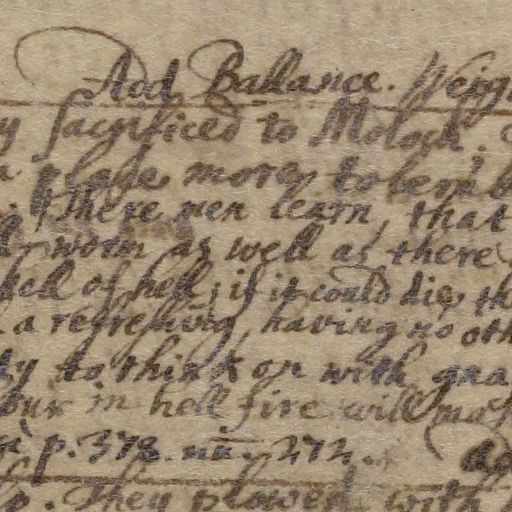 Add Ballance. Weig
y sacrificed to Moloch.
place more tolerab
There men learn, that
worm as well as there
hell of hell; if it could die, th
a refreshing, having no oth
ty to think on with gna
our in hell fire will ma
p. 378. nu. 272. ad
. They plowed with